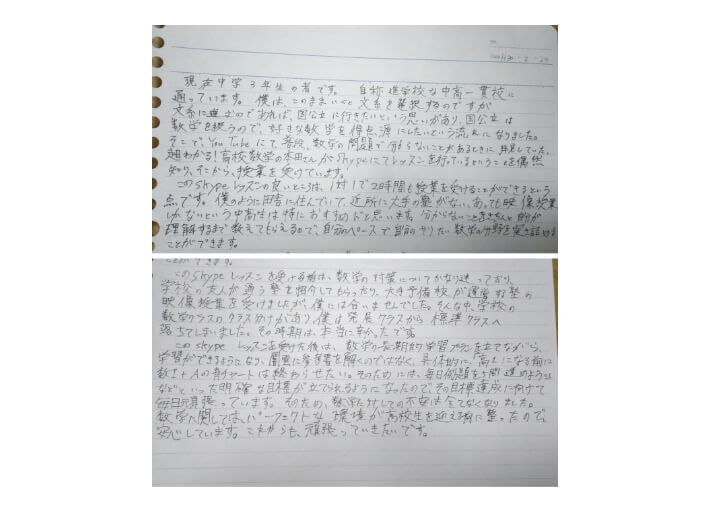 現在中学3年生の者です。 自称進学校な中高一貫校に
通っています。僕は、このままいくと文系を選択するのですが
文系に進むのであれば、国公立に行きたいという思いがあり、国公立は
数学を使うので、好きな数学を得点源にしたいという流れになりました。
そこで、YouTubeにて普段、数学の問題で分からないことがあるときに、拝見していた
超わかる!高校数学の本田さんがSkypeにてレッスンを行っているということを偶然
知り、そこから、授業を受けています。
このSkypeレッスンの良いところは、1対1で2時間も授業を受けることができるという
点です。僕のように田舎に住んでいて、近所に大手の塾がない、あっても映像授業
しかないという中高生は特におすすめだと思います。分からないことをきちんと
理解するまで教えてもらえるので、自分のペースで自分のやりたい数学の分野を突き詰める
ことができます。
ことができます。
このSkypeレッスンを受ける前は、数学の対策についてかなり迷っており、
学校の友人が通う塾を紹介してもらったり、大手予備校が運営する塾の
映像授業を受けましたが、僕には合いませんでした。そんな中、学校の
数学クラスのクラス分けがあり、僕は発展クラスから標準クラスへ
落ちてしまいました。その時期は本当に辛かったです。
このSkypeレッスンを受けた後は、数学の長期的学習プランを立てながら、
学習ができるようになり、闇雲に参考書を解くのではなく、具体的に「高1になる前に
数I+Aの青チャートは終わらせたい。そのためには、毎日例題を5問進めよう。」
などといった明確な目標が立てられるようになったので、その目標達成に向けて
毎日頑張っています。そのため、数学に対しての不安は全てなくなりました。
数学に関しては、パーフェクトな環境が高校生を迎える前に整ったので、
安心しています。これからも、頑張っていきたいです。